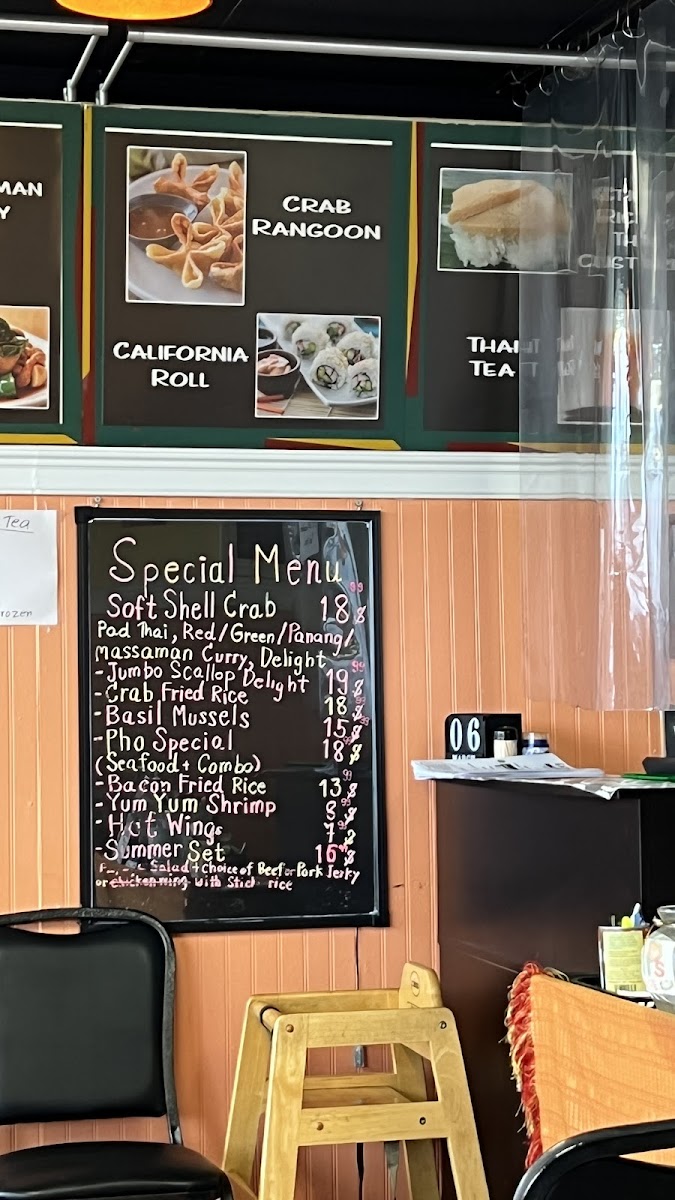 MAN
Y
CRAB
RANGOON
CALIFORNIA
ROLL
THAI
TEA
Tea
rozen
Special Menu
Soft Shell Crab 18.99 $
Pad Thai, Red/Green/Panang/
massaman Curry, Delight
-Jumbo Scallop Delight 19.99 $
-Crab Fried Rice 18 $
-Basil Mussels 15.99 $
-Pho Special 18.99 $
(Seafood + Combo)
-Bacon Fried Rice 13.99 $
-Yum Yum Shrimp $
-Hot Wings 7.99 $
-Summer Set 16 $
Salad + choice of Beef or Pork Jerky
or chicken wing with Sticky rice
06